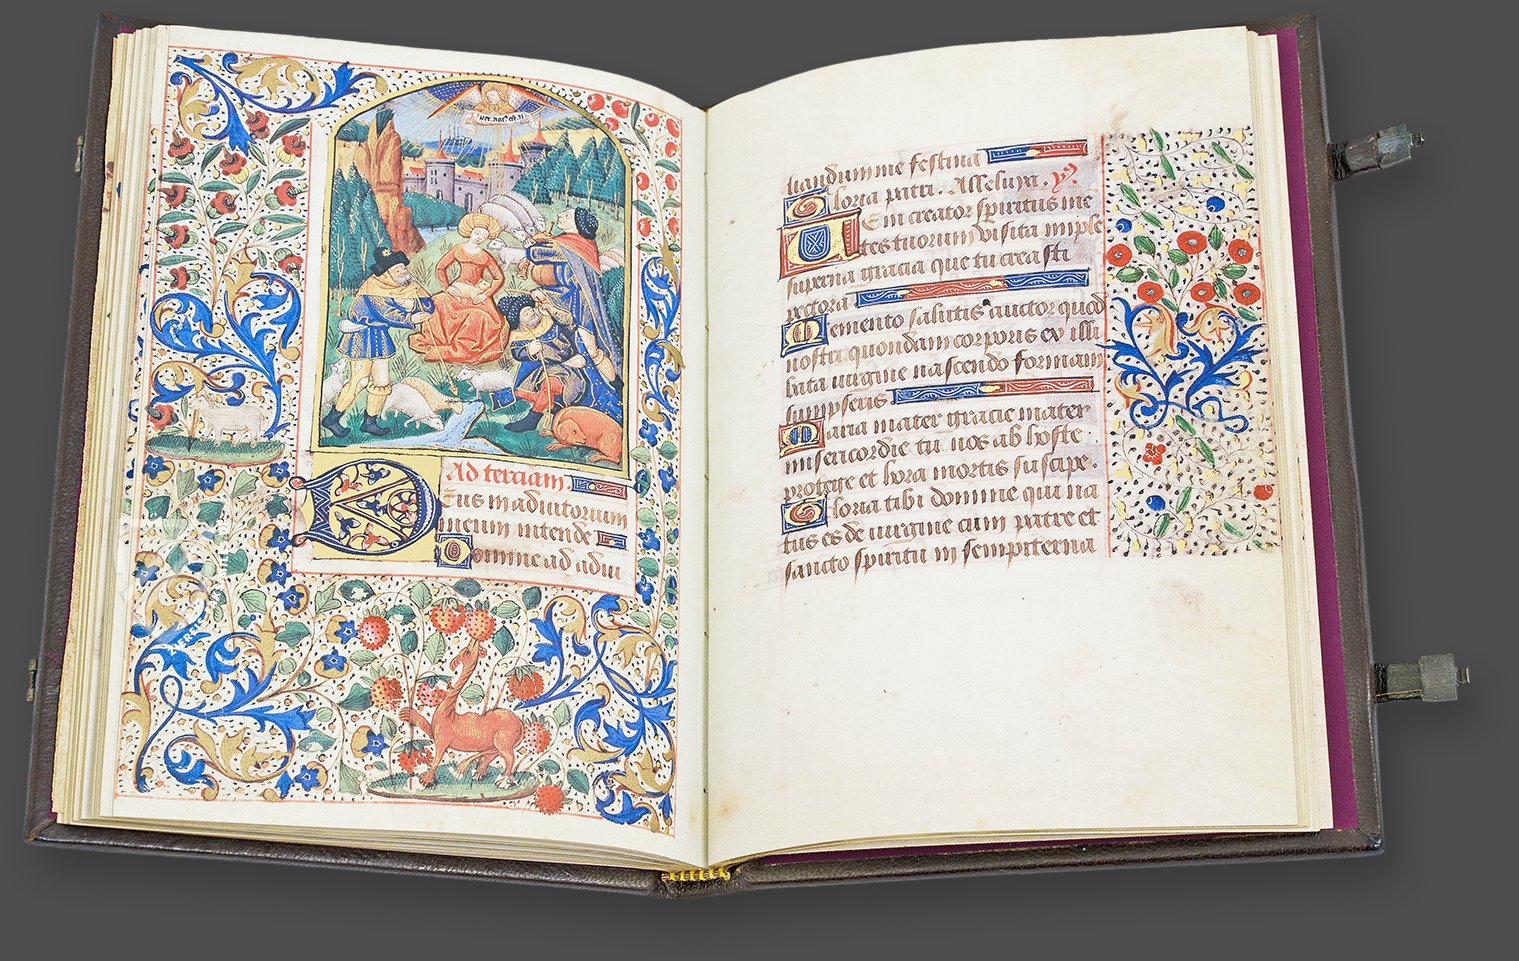 Ad terciam
Deus in adiutorium
meum intende
Domine ad adiu
uandum me festina
Gloria patri. Alleluya.
Veni creator spiritus me
tes tuorum visita imple
superna gracia que tu creasti
pectora
Memento salutis auctor quod
nostri quondam corporis ex illi
bata uirgine nascendo formam
sumpseris
Maria mater gracie mater
misericordie tu nos ab hoste
protege et hora mortis suscipe.
Gloria tibi domine qui na
tus es de uirgine cum patre et
sancto spiritu in sempiterna